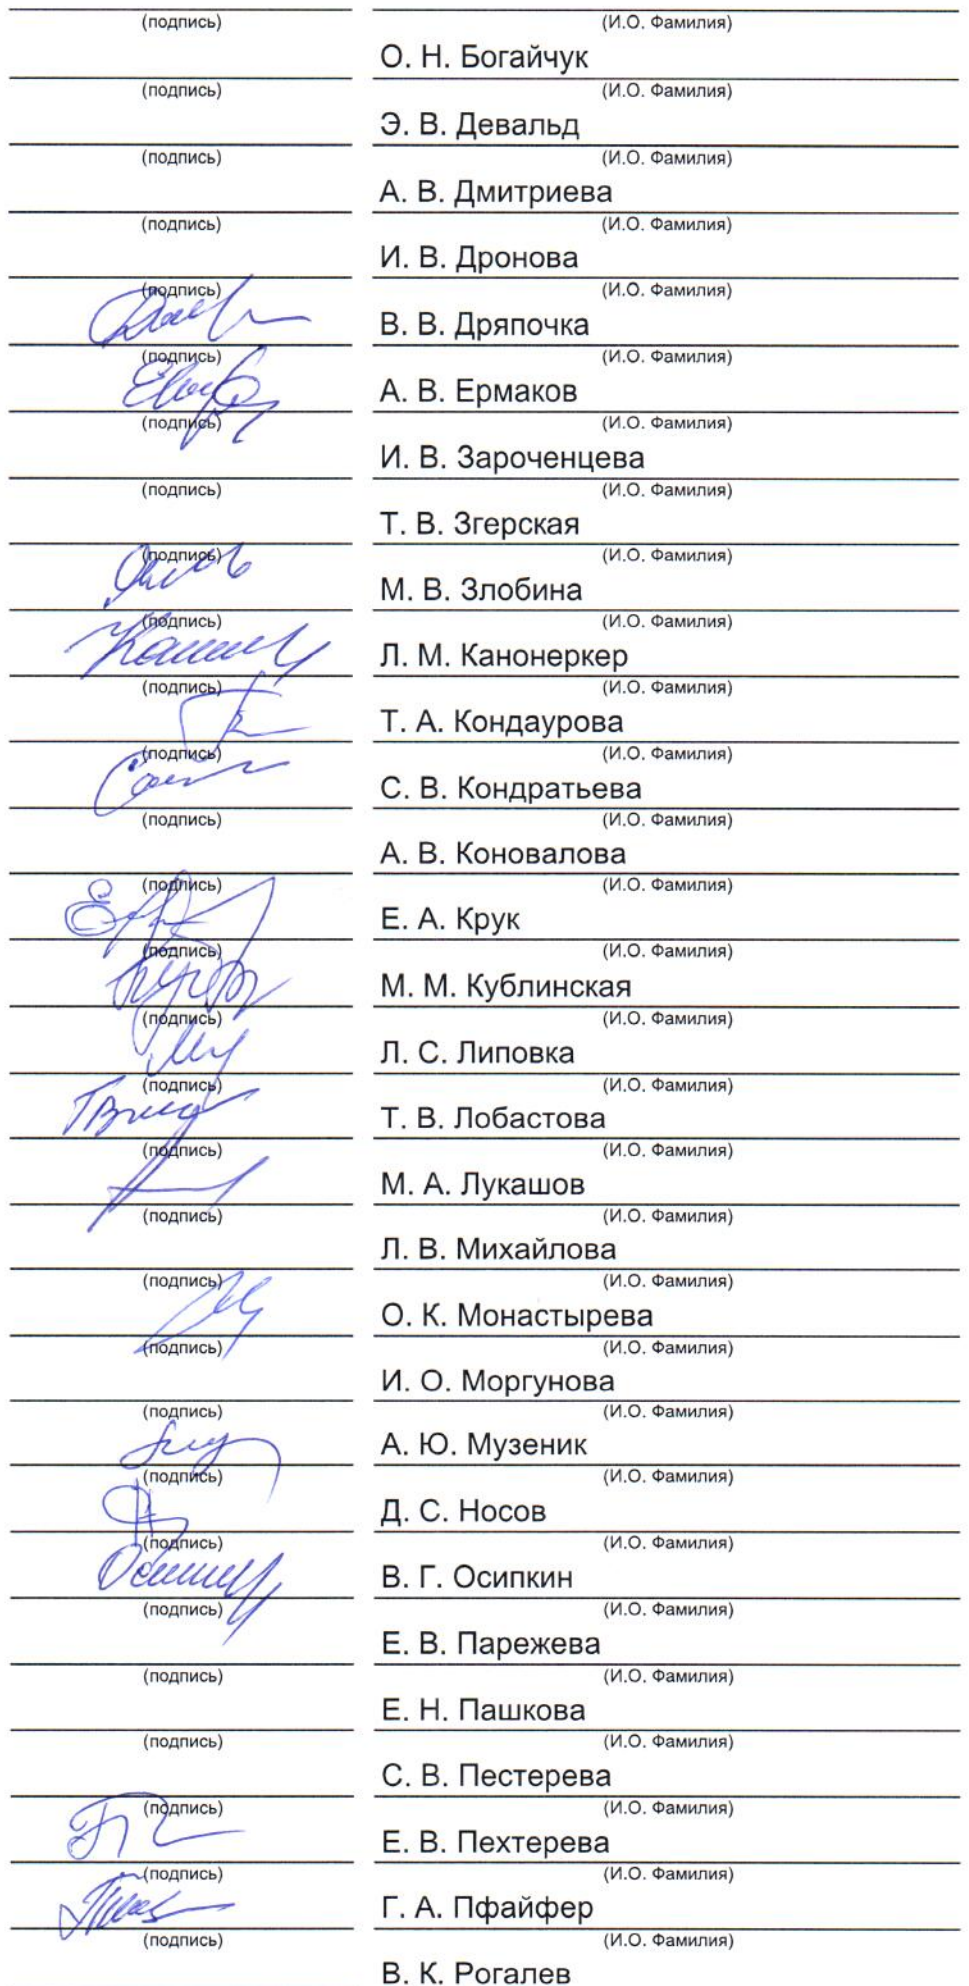 (подпись) (И.О. Фамилия)
О. Н. Богайчук
(подпись) (И.О. Фамилия)
Э. В. Девальд
(подпись) (И.О. Фамилия)
А. В. Дмитриева
(подпись) (И.О. Фамилия)
И. В. Дронова
(подпись) (И.О. Фамилия)
В. В. Дряпочка
(подпись) (И.О. Фамилия)
А. В. Ермаков
(подпись) (И.О. Фамилия)
И. В. Зароченцева
(подпись) (И.О. Фамилия)
Т. В. Згерская
(подпись) (И.О. Фамилия)
М. В. Злобина
(подпись) (И.О. Фамилия)
Л. М. Канонеркер
(подпись) (И.О. Фамилия)
Т. А. Кондаурова
(подпись) (И.О. Фамилия)
С. В. Кондратьева
(подпись) (И.О. Фамилия)
А. В. Коновалова
(подпись) (И.О. Фамилия)
Е. А. Крук
(подпись) (И.О. Фамилия)
М. М. Кублинская
(подпись) (И.О. Фамилия)
Л. С. Липовка
(подпись) (И.О. Фамилия)
Т. В. Лобастова
(подпись) (И.О. Фамилия)
М. А. Лукашов
(подпись) (И.О. Фамилия)
Л. В. Михайлова
(подпись) (И.О. Фамилия)
О. К. Монастырева
(подпись) (И.О. Фамилия)
И. О. Моргунова
(подпись) (И.О. Фамилия)
А. Ю. Музеник
(подпись) (И.О. Фамилия)
Д. С. Носов
(подпись) (И.О. Фамилия)
В. Г. Осипкин
(подпись) (И.О. Фамилия)
Е. В. Парежева
(подпись) (И.О. Фамилия)
Е. Н. Пашкова
(подпись) (И.О. Фамилия)
С. В. Пестерева
(подпись) (И.О. Фамилия)
Е. В. Пехтерева
(подпись) (И.О. Фамилия)
Г. А. Пфайфер
(подпись) (И.О. Фамилия)
В. К. Рогалев